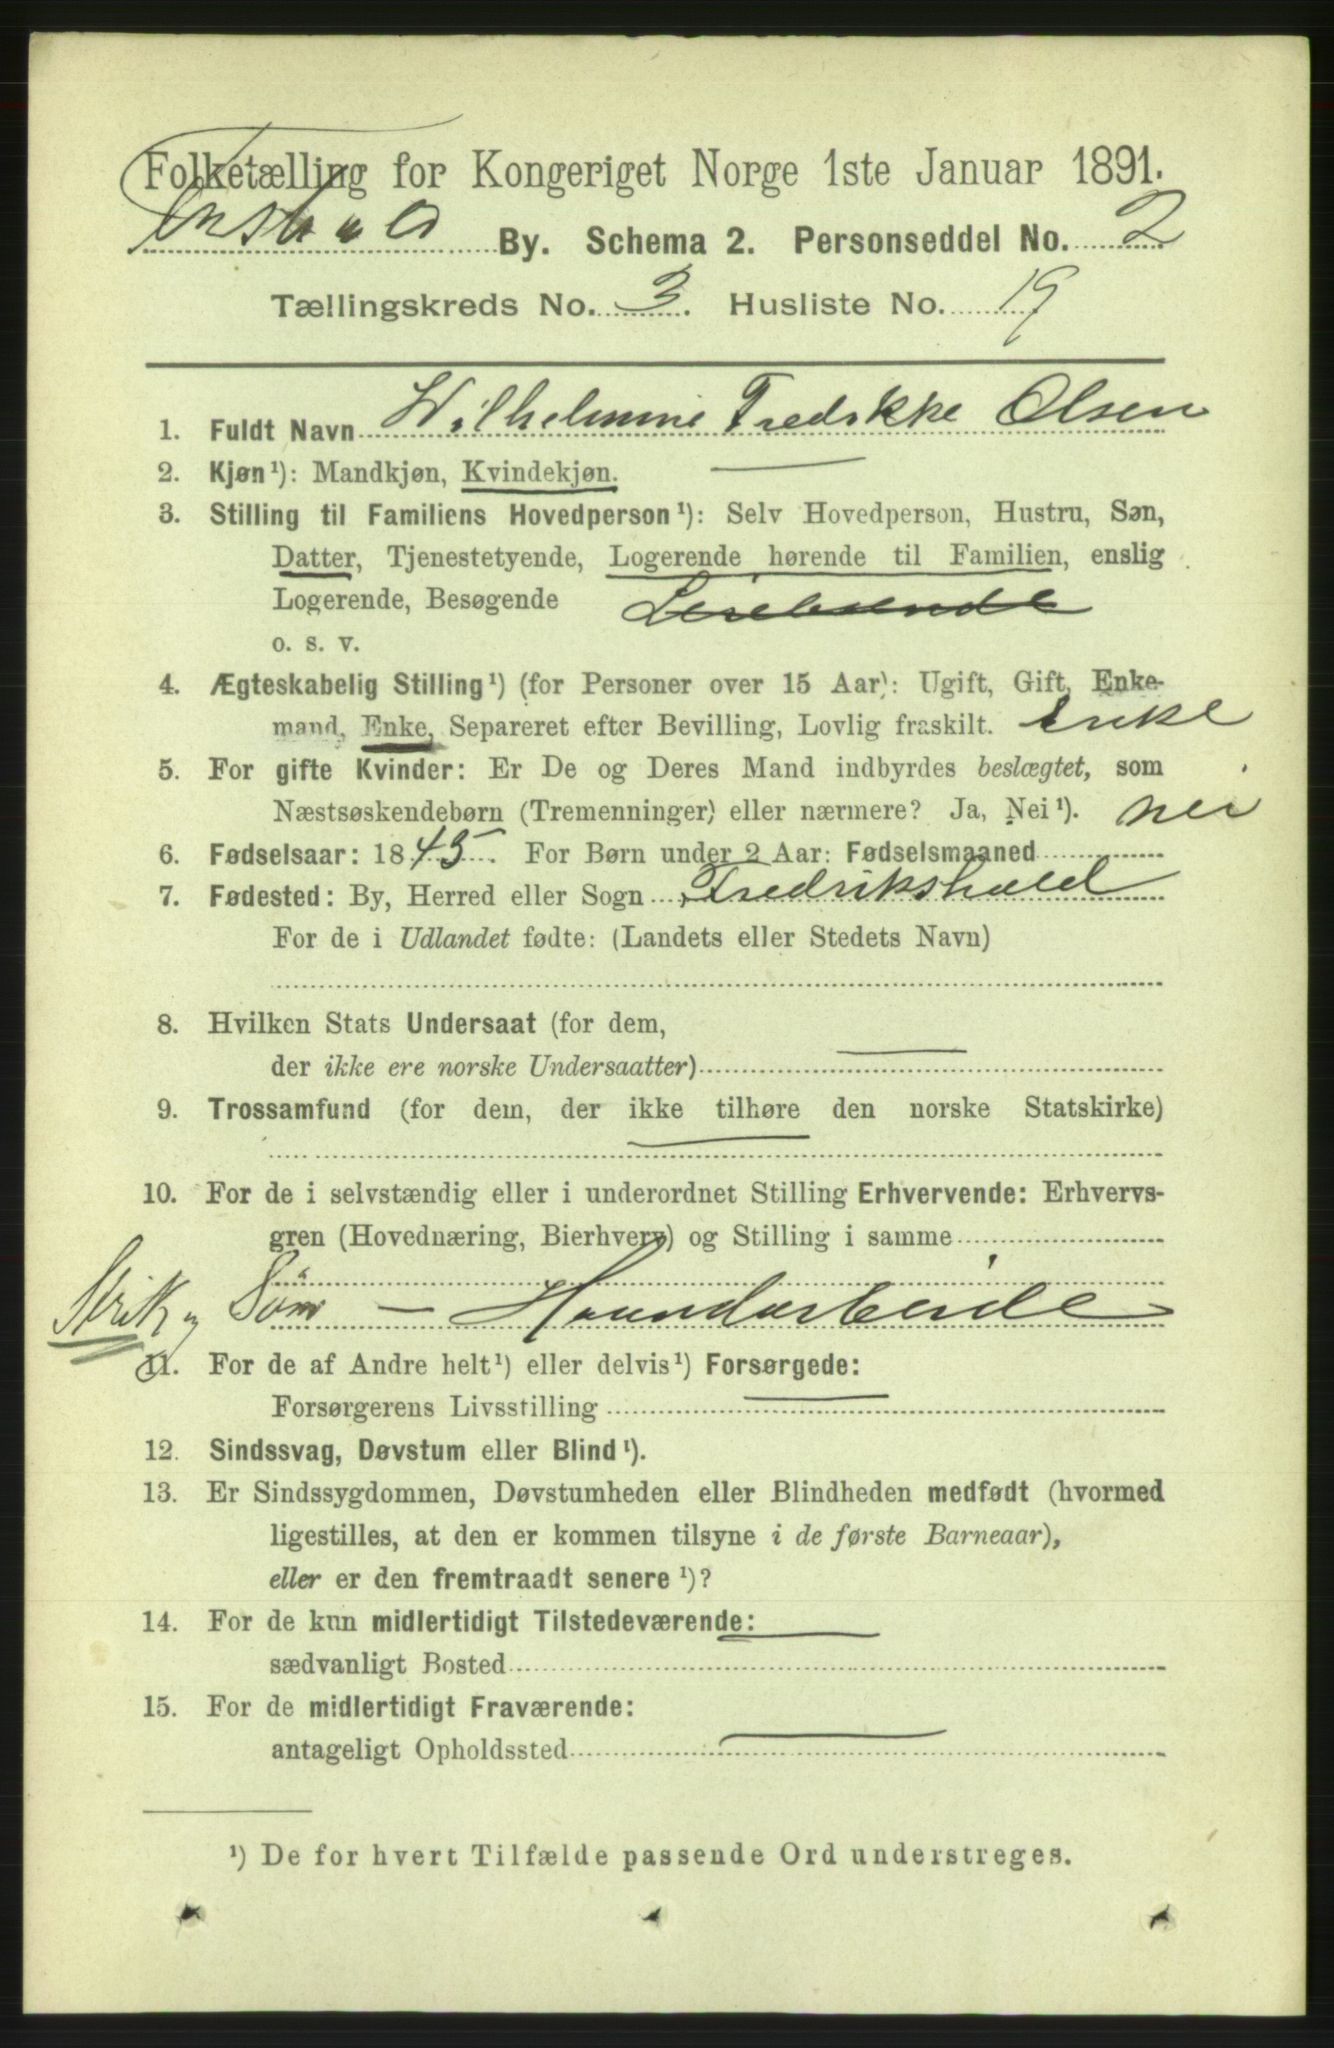 Folketælling for Kongeriget Norge 1ste Januar 1891.
By. Schema 2. Personseddel No. 2
Tællingskreds No. 3. Husliste No. 19
1. Fuldt Navn Wilhelmine Fredrikke Olsen
2. Kjøn¹): Mandkjøn, Kvindekjøn.
3. Stilling til Familiens Hovedperson¹): Selv Hovedperson, Hustru, Søn,
Datter, Tjenestetyende, Logerende hørende til Familien, enslig
Logerende, Besøgende
o. s. v.
4. Ægteskabelig Stilling¹) (for Personer over 15 Aar): Ugift, Gift, Enke-
mand, Enke, Separeret efter Bevilling, Lovlig fraskilt. Enke
5. For gifte Kvinder: Er De og Deres Mand indbyrdes beslægtet, som
Næstsøskendebørn (Tremenninger) eller nærmere? Ja, Nei¹). nei
6. Fødselsaar: 1845. For Børn under 2 Aar: Fødselsmaaned
7. Fødested: By, Herred eller Sogn Fredrikshald
For de i Udlandet fødte: (Landets eller Stedets Navn)
8. Hvilken Stats Undersaat (for dem,
der ikke ere norske Undersaatter)
9. Trossamfund (for dem, der ikke tilhøre den norske Statskirke)
10. For de i selvstændig eller i underordnet Stilling Erhvervende: Erhvervs-
gren (Hovednæring, Bierhverv) og Stilling i samme
Strik og Søm — Haandarbeide
11. For de af Andre helt¹) eller delvis¹) Forsørgede:
Forsørgerens Livsstilling
12. Sindssvag, Døvstum eller Blind¹).
13. Er Sindssygdommen, Døvstumheden eller Blindheden medfødt (hvormed
ligestilles, at den er kommen tilsyne i de første Barneaar),
eller er den fremtraadt senere¹)?
14. For de kun midlertidigt Tilstedeværende:
sædvanligt Bosted
15. For de midlertidigt Fraværende:
antageligt Opholdssted
¹) De for hvert Tilfælde passende Ord understreges.